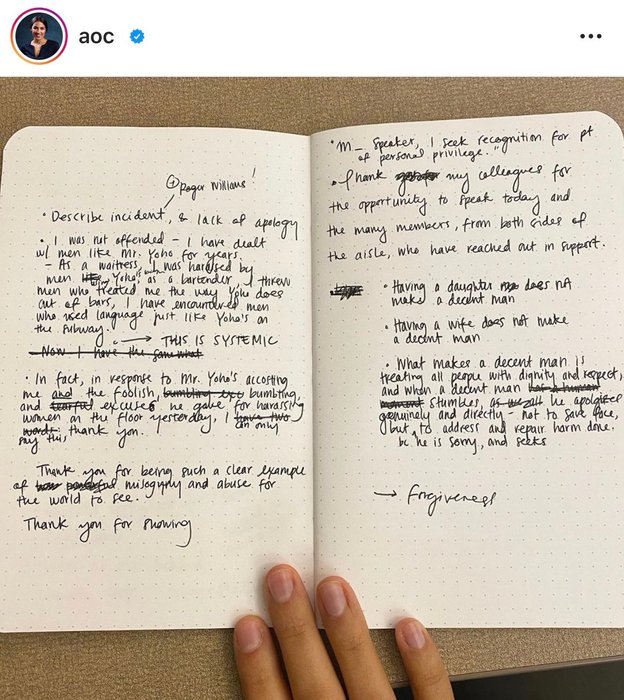 aoc
⊕ Roger Williams!
• Describe incident, & lack of apology
• I was not offended – I have dealt
w/ men like Mr. Yoho for years.
– As a waitress, I was harassed by
men like Yoho as a bartender, I threw
men who treated me the way Yoho does
out of bars, I have encountered men
who used language just like Yoho's on
the subway.
→ THIS IS SYSTEMIC
Now I have the same what
• In fact, in response to Mr. Yoho's accosting
me and the foolish, bumbling
bumbling,
and tearful excuses he gave for harassing
women on the floor yesterday, I have two
can only
say this, words: thank you.
Thank you for being such a clear example
of misogyny and abuse for
the world to see.
Thank you for showing
"M_ Speaker, I seek recognition for pt
of personal privilege."
• Thank my colleagues for
the opportunity to speak today and
the many members, from both sides of
the aisle, who have reached out in support.
• Having a daughter does not
make a decent man
• Having a wife does not make
a decent man
• What makes a decent man is
treating all people with dignity and respect,
and when a decent man has a human
moment stumbles, as we all he apologizes
genuinely and directly – not to save face,
but to address and repair harm done.
bc he is sorry, and seeks
→ forgiveness